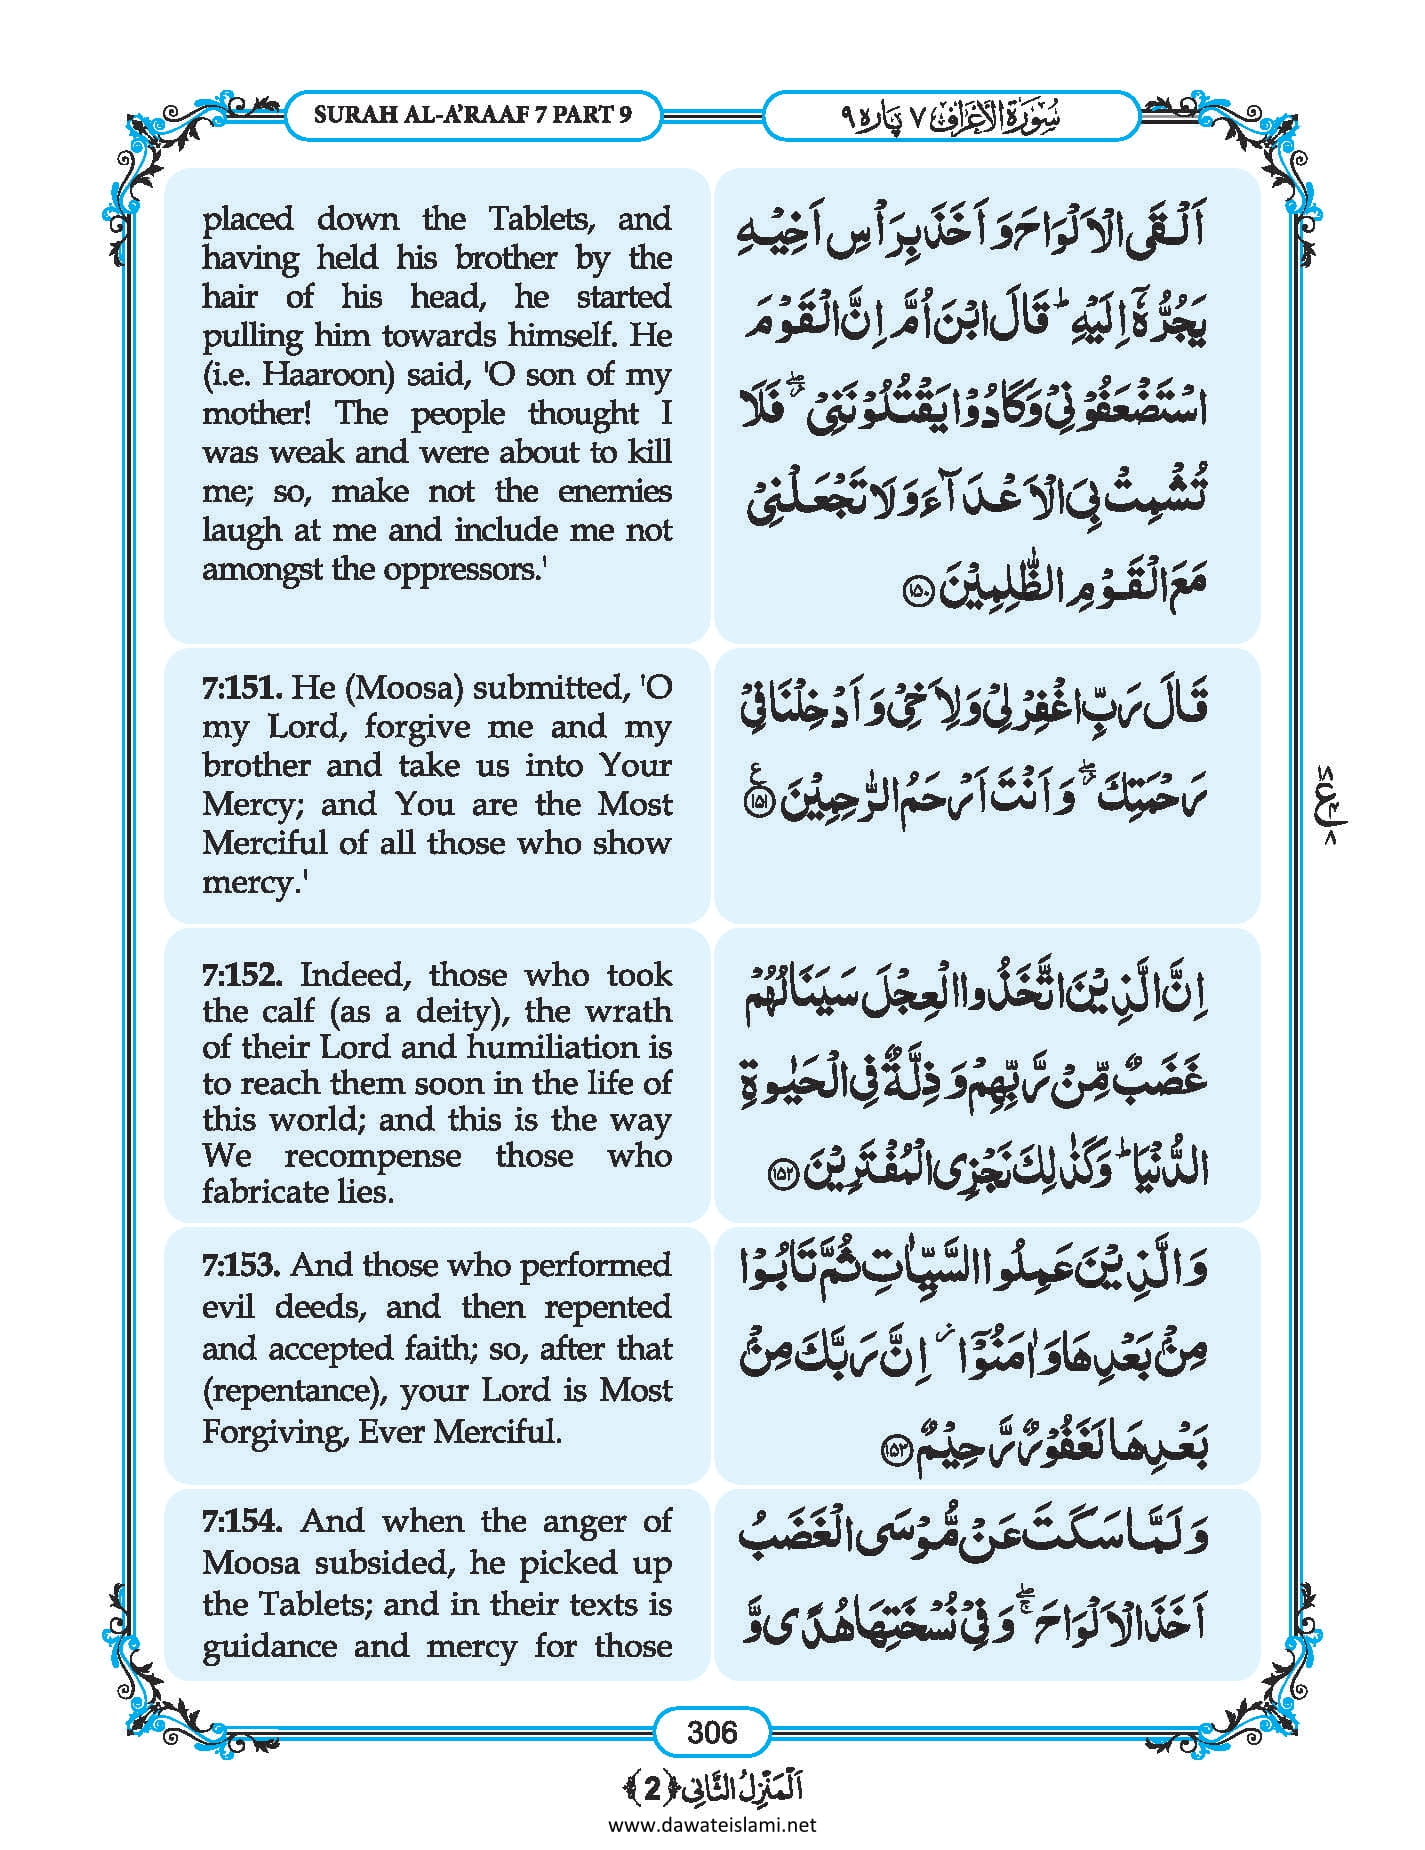 SURAH AL-A’RAAF 7 PART 9
سُوۡرَۃُ الۡاَعۡرَافِ ۷ پارہ ۹
placed down the Tablets, and
having held his brother by the
hair of his head, he started
pulling him towards himself. He
(i.e. Haaroon) said, 'O son of my
mother! The people thought I
was weak and were about to kill
me; so, make not the enemies
laugh at me and include me not
amongst the oppressors.'
اَلۡقَی الۡاَلۡوَاحَ وَ اَخَذَ بِرَاۡسِ اَخِیۡہِ
یَجُرُّہٗۤ اِلَیۡہِ ؕ قَالَ ابۡنَ اُمَّ اِنَّ الۡقَوۡمَ
اسۡتَضۡعَفُوۡنِیۡ وَکَادُوۡا یَقۡتُلُوۡنَنِیۡ ۫ۖ فَلَا
تُشۡمِتۡ بِیَ الۡاَعۡدَآءَ وَلَا تَجۡعَلۡنِیۡ
مَعَ الۡقَوۡمِ الظّٰلِمِیۡنَ ﴿۱۵۰﴾
7:151. He (Moosa) submitted, 'O
my Lord, forgive me and my
brother and take us into Your
Mercy; and You are the Most
Merciful of all those who show
mercy.'
قَالَ رَبِّ اغۡفِرۡ لِیۡ وَلِاَخِیۡ وَ اَدۡخِلۡنَا فِیۡ
رَحۡمَتِکَ ۫ۖ وَ اَنۡتَ اَرۡحَمُ الرّٰحِمِیۡنَ ﴿۱۵۱﴾ ع
۱۸
ع
۴
۸
7:152. Indeed, those who took
the calf (as a deity), the wrath
of their Lord and humiliation is
to reach them soon in the life of
this world; and this is the way
We recompense those who
fabricate lies.
اِنَّ الَّذِیۡنَ اتَّخَذُوا الۡعِجۡلَ سَیَنَالُہُمۡ
غَضَبٌ مِّنۡ رَّبِّہِمۡ وَ ذِلَّۃٌ فِی الۡحَیٰوۃِ
الدُّنۡیَا ؕ وَکَذٰلِکَ نَجۡزِی الۡمُفۡتَرِیۡنَ ﴿۱۵۲﴾
7:153. And those who performed
evil deeds, and then repented
and accepted faith; so, after that
(repentance), your Lord is Most
Forgiving, Ever Merciful.
وَ الَّذِیۡنَ عَمِلُوا السَّیِّاٰتِ ثُمَّ تَابُوۡا
مِنۡۢ بَعۡدِہَا وَ اٰمَنُوۡۤا ۫ اِنَّ رَبَّکَ مِنۡۢ
بَعۡدِہَا لَغَفُوۡرٌ رَّحِیۡمٌ ﴿۱۵۳﴾
7:154. And when the anger of
Moosa subsided, he picked up
the Tablets; and in their texts is
guidance and mercy for those
وَلَمَّا سَکَتَ عَنۡ مُّوۡسَی الۡغَضَبُ
اَخَذَ الۡاَلۡوَاحَ ۚۖ وَفِیۡ نُسۡخَتِہَا ہُدًی وَّ
306
اَلۡمَنۡزِلُ الثَّانِی ﴿2﴾
www.dawateislami.net